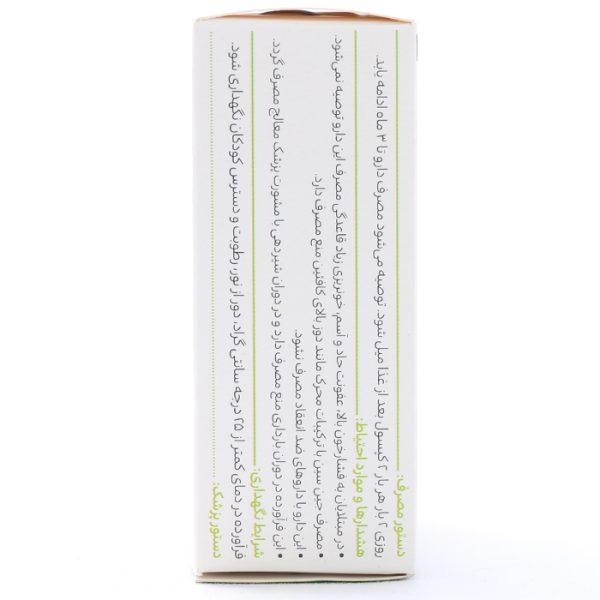 دستور مصرف:
روزی ۲ بار هر بار ۲ کپسول بعد از غذا میل شود. توصیه می‌شود مصرف دارو تا ۳ ماه ادامه یابد.
هشدارها و موارد احتیاط:
• در مبتلایان به فشارخون بالا، عفونت حاد و آسم، خونریزی زیاد قاعدگی مصرف این دارو توصیه نمی‌شود.
• مصرف جین سین با ترکیبات محرک مانند دوز بالای کافئین منع مصرف دارد.
• این دارو با داروهای ضد انعقاد مصرف نشود.
• این فرآورده در دوران بارداری منع مصرف دارد و در دوران شیردهی با مشورت پزشک معالج مصرف گردد.
شرایط نگهداری:
فرآورده در دمای کمتر از ۲۵ درجه سانتی گراد، دور از نور، رطوبت و دسترس کودکان نگهداری شود.
دستور پزشک: